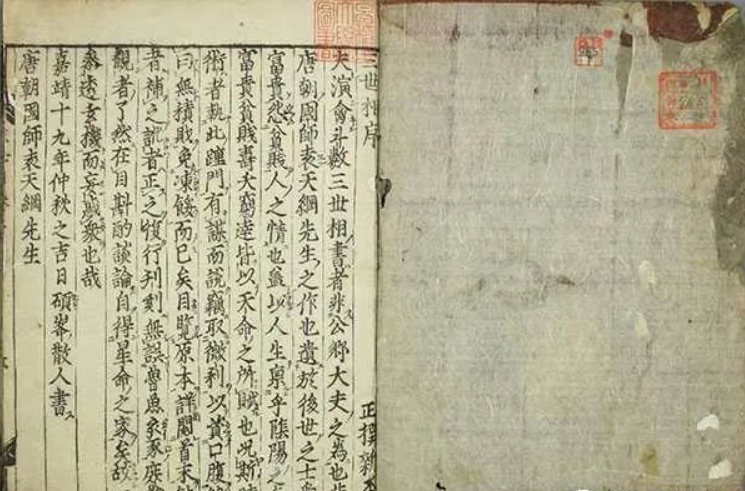 三世相序
夫演會斗數三世相書者非公卿大夫之為也
唐朝國師袁天綱先生之作也遺於後世之士
富貴愁貧賤人之情也蓋以人生稟乎陰陽之
富貴貧賤壽夭窮達皆以天命之所賦也況斯
術者執此踵門有謀而說竊取微利以資口腹
曰無積敗免凍餒而已矣目覽原本詳閱首末
者補之訛者正之復行刊刻無誤魯魚亥豕庶
觀者了然在目斟酌談論自得星命之家矣故
參透玄機而妄惑衆也哉
嘉靖十九年仲秋之吉日碩峯散人書
唐朝國師袁天綱先生
正撰